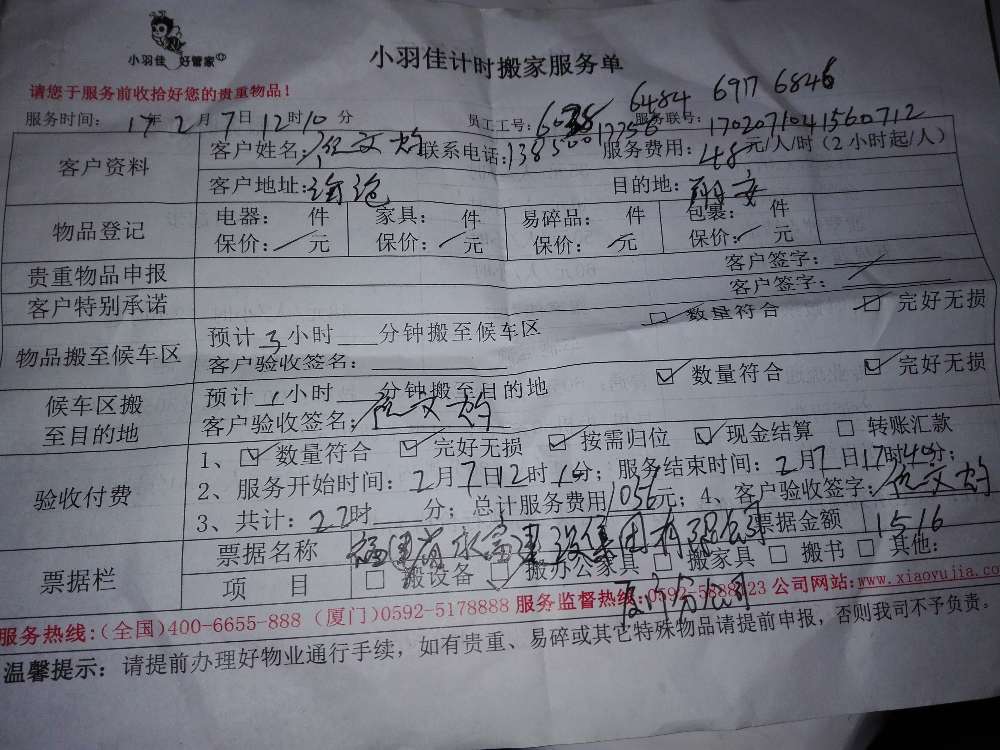 小羽佳 好管家
小羽佳计时搬家服务单
请您于服务前收拾好您的贵重物品!
6484 6917 6846
服务时间: 17年2月7日12时10分 员工工号: 服务联号: 1702071041560712
客户资料
客户姓名: 文 联系电话: 服务费用: 48元/人/时(2小时起/人)
客户地址: 目的地: 翔安
物品登记
电器: 件 家具: 件 易碎品: 件 包裹: 件
保价: 元 保价: 元 保价: 元 保价: 元
贵重物品申报 客户签字:
客户特别承诺 客户签字:
物品搬至候车区
预计3小时___分钟搬至候车区 □ 数量符合 □ 完好无损
客户验收签名:
候车区搬至目的地
预计1小时___分钟搬至目的地 ☑ 数量符合 ☑ 完好无损
客户验收签名: 文
验收付费
1、☑ 数量符合 ☑ 完好无损 ☑ 按需归位 ☑ 现金结算 □ 转账汇款
2、服务开始时间: 2月7日12时10分; 服务结束时间: 2月7日17时40分;
3、共计: 22时___分; 总计服务费用1056元; 4、客户验收签字: 文
票据栏
票据名称 福建省水 建设集团有限公司 票据金额 1516
厦门分公司
项 目 □ 搬设备 ☑ 搬办公家具 □ 搬家具 □ 搬书 □ 其他:
服务热线:(全国)400-6655-888 (厦门)0592-5178888 服务监督热线:0592-5888123 公司网站:www.xiaoyujia.com
温馨提示: 请提前办理好物业通行手续,如有贵重、易碎或其它特殊物品请提前申报,否则我司不予负责。